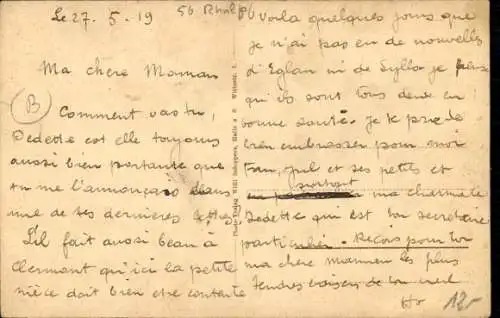 Le 27. 5. 19
Ma chere Maman
B
Comment vas tu,
Dedette est elle toujours
aussi bien portante que
tu me l'annonçais dans
une de tes dernieres lettres
S'il fait aussi beau à
Clermont qu'ici la petite
nièce doit bien etre contente
56
Voila quelques jours que
je n'ai pas eu de nouvelles
d'Eglan ni de Sylla je pense
qu'ils sont tous deux en
bonne santé. Je te prie de
bien embrasser pour moi
et ses petits et
surtout
ma charmante
Dedette qui est ton secrétaire
particulier. Reçois pour toi
ma chere maman les plus
tendres baisers de ton
120